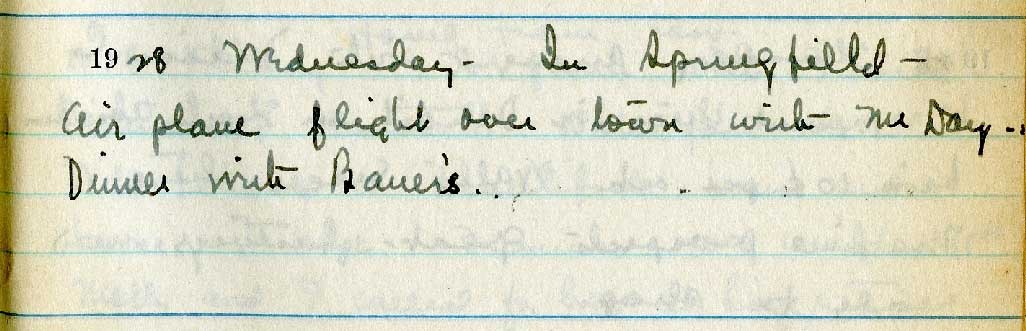 1928 Wednesday - In Springfield -
Air plane flight over town with Mr Day -
Dinner with Bauer's.